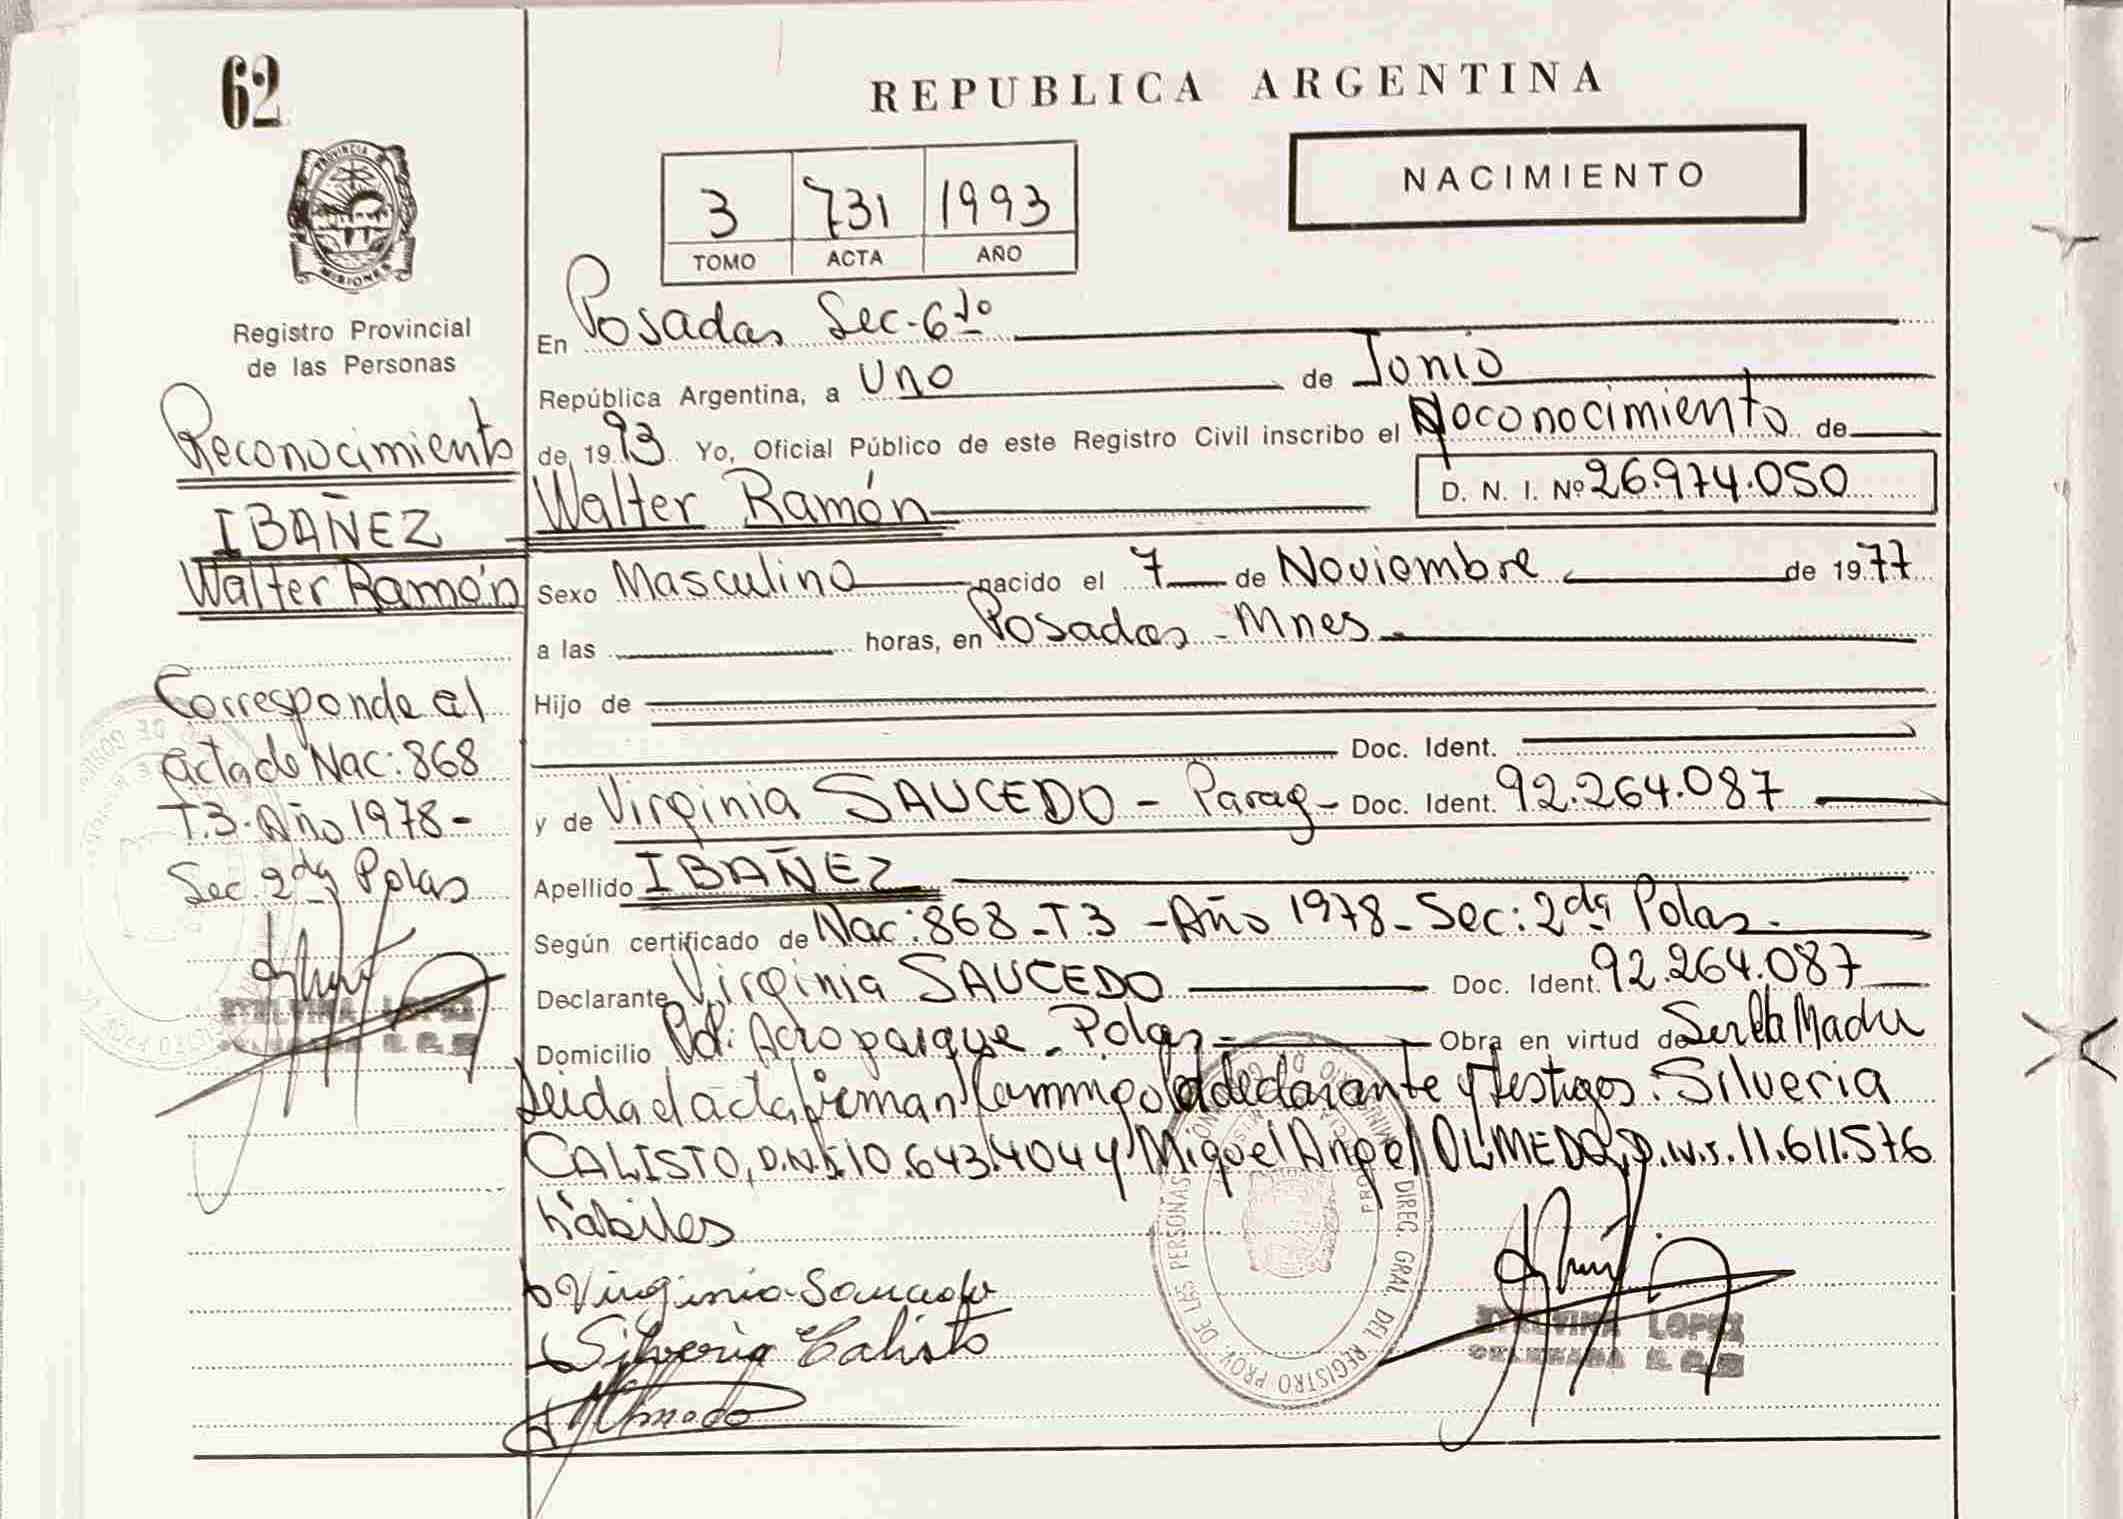 62
REPUBLICA ARGENTINA
NACIMIENTO
3 731 1993
TOMO ACTA AÑO
PROVINCIA DE
MISIONES
Registro Provincial
de las Personas
Reconocimiento
IBAÑEZ
Walter Ramón
Corresponde al
acta de Nac: 868
T.3. Año 1978-
Sec. 2da Polas
ETELVINA LOPEZ
En Posadas Sec-6to
República Argentina, a Uno de Junio
de 1993. Yo, Oficial Público de este Registro Civil inscribo el Roconocimiento de
Walter Ramón D. N. I. Nº 26.974.050
Sexo Masculino nacido el 7 de Noviembre de 1977
a las horas, en Posadas - Mnes.
Hijo de
Doc. Ident.
y de Virginia SAUCEDO - Parag- Doc. Ident. 92.264.087
Apellido IBAÑEZ
Según certificado de Nac: 868-T3 -Año 1978- Sec: 2da Polas.
Declarante Virginia SAUCEDO Doc. Ident. 92.264.087
Domicilio Aeroparque - Polas- Obra en virtud de Ser la Madre
Leida el acta firman conmigo la declarante y testigos. Silveria
CALISTO, D.N.I. 10.643.404 y Miguel Angel OLMEDO, D.N.I. 11.611.576
hábiles
Virginia Saucedo
Silveria Calisto
Olmedo
DIREC. GRAL. DEL REGISTRO PROV. DE LAS PERSONAS
ETELVINA LOPEZ